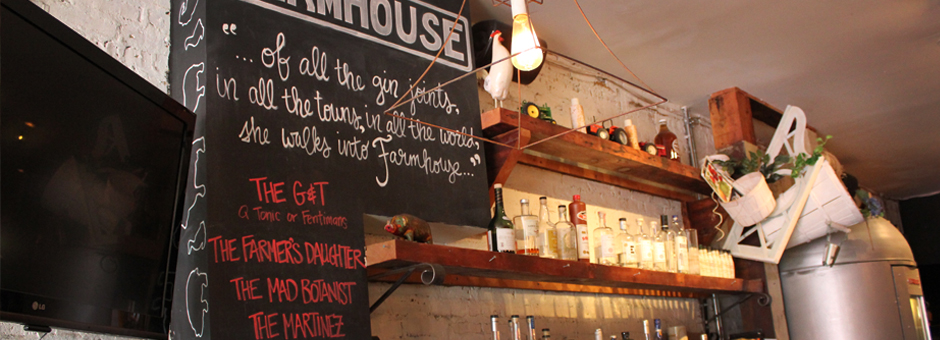 FARMHOUSE
"...of all the gin joints,
in all the towns, in all the world,
she walks into Farmhouse..."
THE G&T
Q TONIC or FENTIMANS
THE FARMER'S DAUGHTER
THE MAD BOTANIST
THE MARTINEZ
LG
A